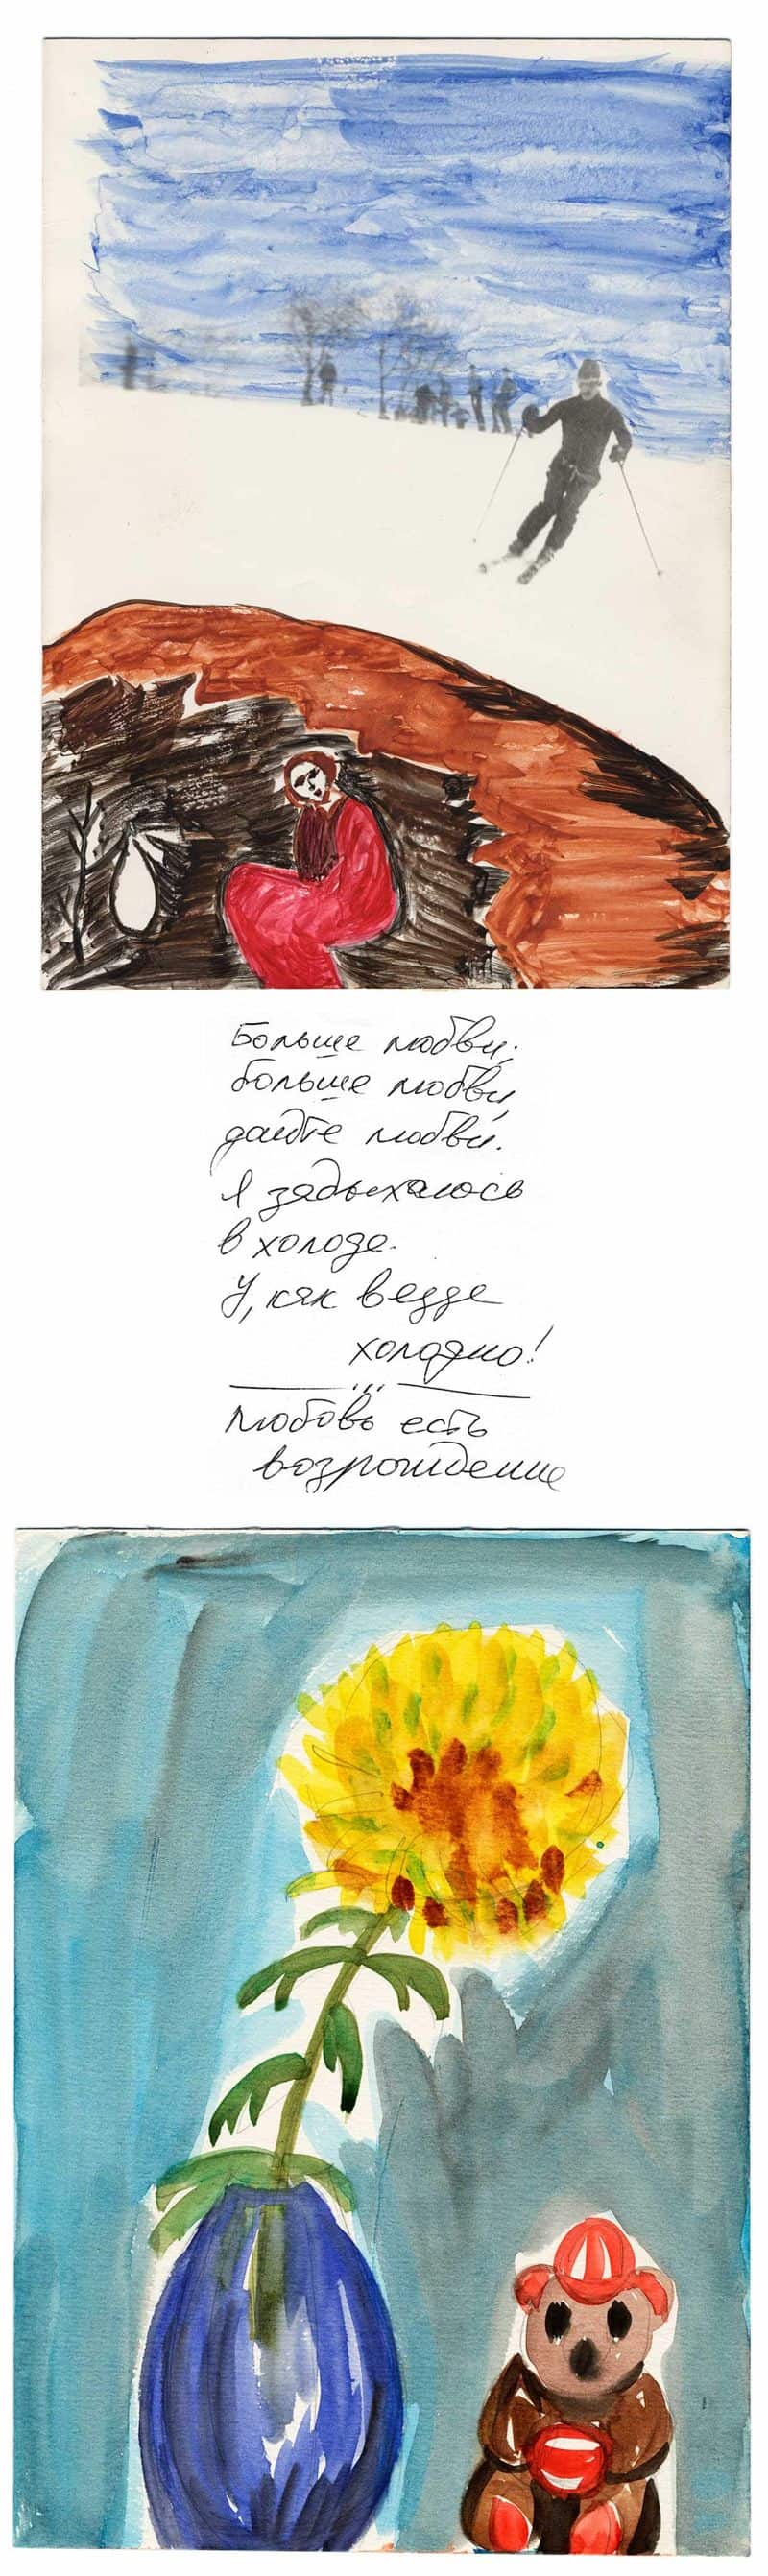 Больше любви,
больше любви,
дайте любви.
Я задыхаюсь
в холоде.
У, как везде
холодно!
Любовь есть
возрождение